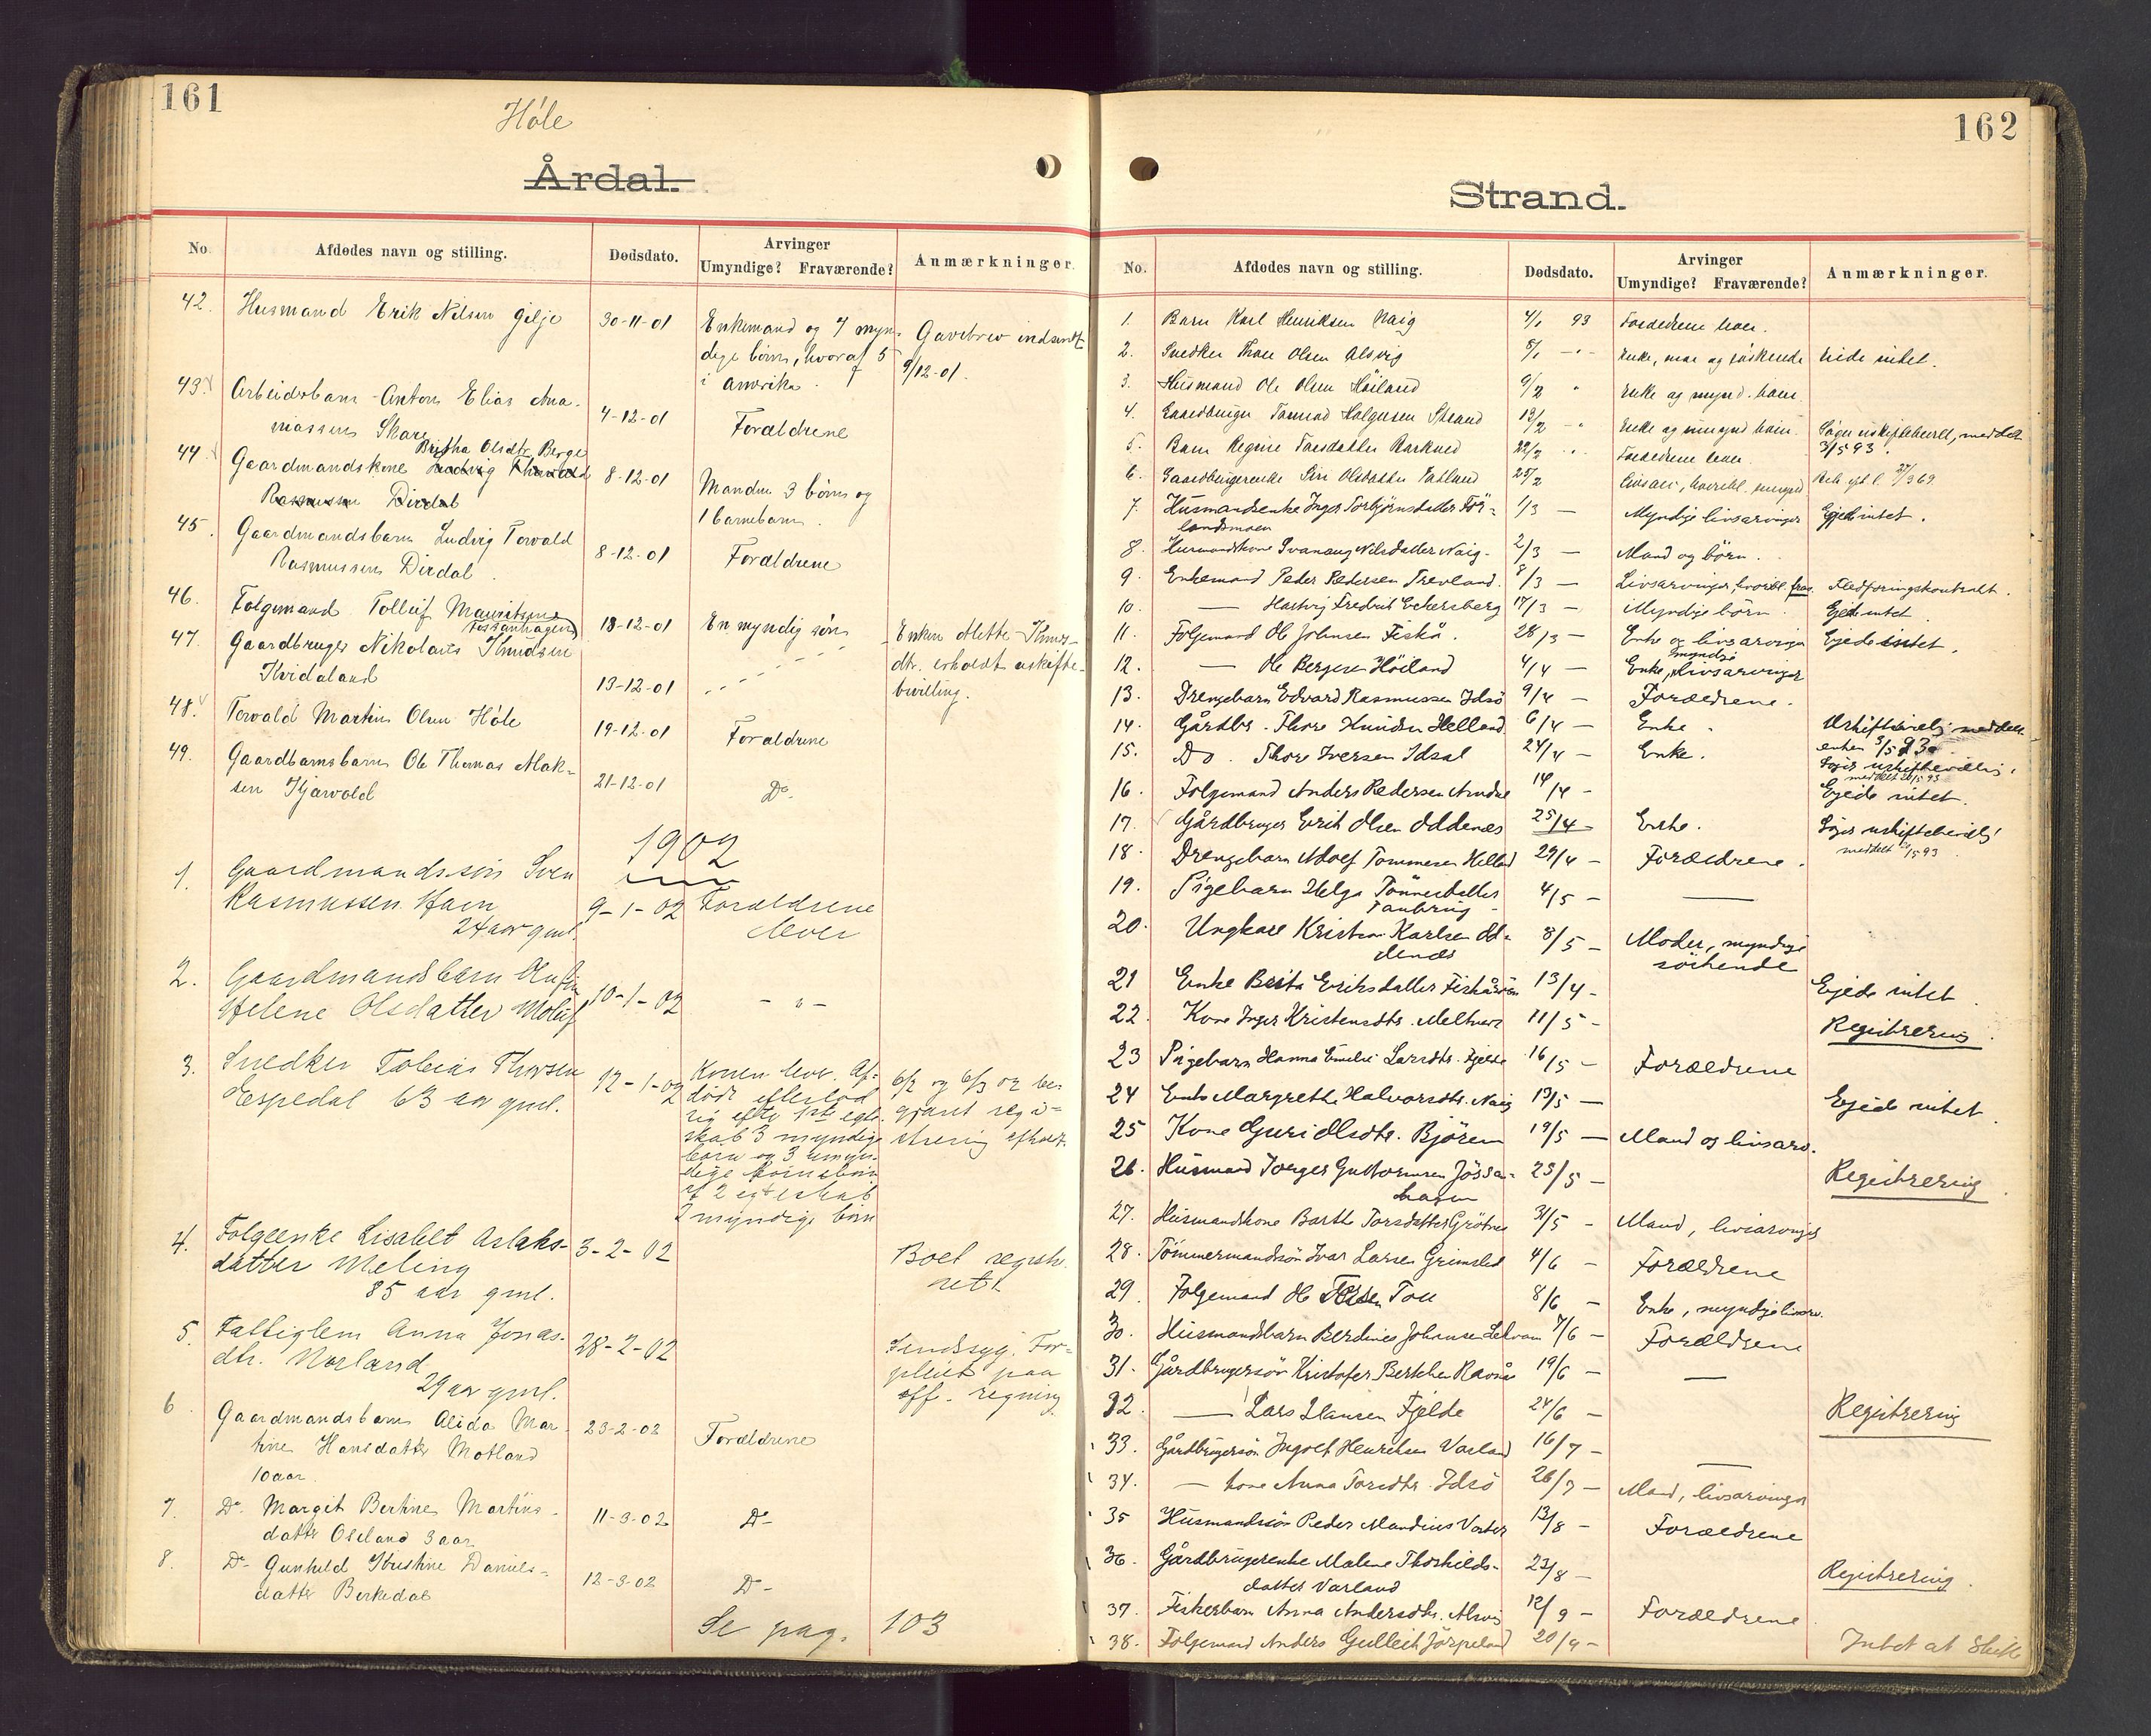 161
Höle
Årdal.
No. Afdødes navn og stilling. Dødsdato. Arvinger Umyndige? Fraværende? Anmærkninger.
42. Husmand Erik Nilsen Gilje 30-11-01 Enkemand og 7 myn-
dige börn, hvoraf 5
i Amerika. Gavebrev indsendt
9/12-01.
43. Arbeidsbarn Anton Elias
Skare 4-12-01 Forældrene
44. Gaardmandskone Ludvig Thorvald
Britha Olsdtr. Berge
Rasmussen Dirdal 8-12-01 Manden 3 börn og
1 barnebarn.
45. Gaardmandsbarn Ludvig Torvald
Rasmussen Dirdal 8-12-01 Forældrene
46. Folgemand Tolleif Mauritsen
Fossanhagen 18-12-01 En myndig sön
47. Gaardbruger Nikolais Knudsen
Kvidaland 13-12-01 Enken Mette
dtr. erholdt uskifte-
bevilling.
48. Torvald Martin Olsen Höle 19-12-01 Forældrene
49. Gaardbarnsbarn Ole Thomas
sen Kjærvold 21-12-01 Do-
1902
1. Gaardmandssön Sven
Rasmussen Haen
24 aar gml. 9-1-02 Forældrene
lever
2. Gaardmandsbarn
Helene Olsdatter 10-1-02 - " -
3. Snedker Tobias Thorsen
Espedal 63 aar gml. 12-1-02 Konen lever. Af-
döde efterlod
sig efter 1ste egte-
skab 3 myndige
börn og 3 umyn-
dige
af 2 egteskab
2 myndige börn
6/2 og 6/3 02 be-
gjært regi-
strering afholdt
4. Folgeenke Lisabet Aslaks-
datter Meling
85 aar gml. 3-2-02 Boet regist-
5. Fattiglem Anna Jonas-
dtr. Norland
29 aar gml. 28-2-02 Sindssyg. For-
pleiet paa
off. regning
6 Gaardmandsbarn Alida Mar-
tine Hansdatter Motland
10 aar. 23-2-02 Forældrene
7. Do- Margit Bertine Martins-
datter Oseland 3 aar 11-3-02 Do-
8. Do- Gunhild Kristine Daniels-
datter Birkedal 12-3-02 Do-
Se pag. 103
162
Strand.
No. Afdødes navn og stilling. Dødsdato. Arvinger Umyndige? Fraværende? Anmærkninger.
1. Barn Karl Henriksen Naig 4/1 93 Forældrene lever.
2. Snedker Olsen Alsvig 5/1 Enke, mor og söskende Eiede intet.
3. Husmand Ole Olsen Höiland 9/2 Enke og mynd. börn
4. Gaardbruger Holgersen Strand 13/2 Enke og umynd börn. Söger uskiftebevill., meddelt
3/5 93.
5. Barn Regine 22/2 Forældrene lever
6. Gaardbrugerenke Siri Olsdatter 25/2 livsarv.,
7. Husmandsenke Inger Torbjörnsdatter För-
landsmoen 1/3 — Myndige livsarvinger Ejede intet.
8. Husmandskone Svanaug Nilsdatter Naig- 2/3 — Mand og börn.
9. Enkemand Peder Pedersen Trevland. 8/3 — Livsarvinger, hvoribl. frav. Flodföringskontrakt.
10. — Hartvig Fredrik Eckersberg 17/3 — Myndige börn. Ejede intet.
11. Folgemand Ole Johnsen Fiskå. 28/3 — Enke og livsarvinger Ejede intet.
12. — Ole Bergesen Höiland 4/4 — Enke, myndige livsarvinger
13. Drengebarn Edvard Rasmussen Idsö 9/4 — Forældrene.
14. Gårdbr. Thore Knudsen Helland 6/4 — Enke. Uskiftebevilg. meddelt
enken 3/5 93.
15. Do. Thore Iversen Idsal 24/4 — Enke. Söger uskiftebevilg.
meddelt 5 93
16. Folgemand Anders Pedersen 14/4 - Ejede intet.
17. Gårdbruger Erik Olsen Oddenæs 25/4 Enke. Söger uskiftebevilg.
meddelt /5 93
18. Drengebarn Adolf Tommesen Helland 29/4 - Forældrene.
19. Pigebarn Helga Tönnesdatter
4/5 - —
20. Ungkarl Kristian Karlsen Od-
denæs 8/5 - Moder, myndige
söskende
21 Enke Brita Eriksdatter 13/4 - Ejede intet.
22. Kone Inger Kristensdtr. 11/5 - Registrering.
23 Pigebarn Hanna Emilie Larsdtr. Fjelde 16/5 - Forældrene
24 Enke Margrethe Halvorsdtr. Naig 13/5 — Ejede intet.
25 Kone Guri Olsdtr. Björem 19/5 — Mand og livsarv.
26. Husmand Torger Guttormsen Jössan-
25/5 — Registrering.
27. Husmandskone Barthe Torsdatter Grötnes 31/5 - Mand, livsarvinger
28. Tömmermandssön Ivar Larsen Grimslid 4/6 - Forældrene
29 Folgemand Ole Tou 8/6 - Enke, myndige livsarv.
30. Husmandsbarn Berdines Johansen 7/6 - Forældrene
31. Gårdbrugersön Kristofer Bertelsen 19/6 - —
32. — Lars Hansen Fjelde 24/6 - Registrering
33. Gårdbrugersön Ingvald Henriksen Varland 16/7 - —
34. — kone Anna Torsdtr. Idsö 26/7 — Mand, livsarvinger
35 Husmandssön Peder Mandius 13/8 - Forældrene
36. Gårdbrugerenke Malene Thorkilds-
datter Varland 23/8 - Registrering.
37. Fiskerbarn Anna Andersdtr. Alsvig 12/9 - Forældrene.
38. Folgemand Anders Gulleik Jörpeland 20/9 - Intet at skifte